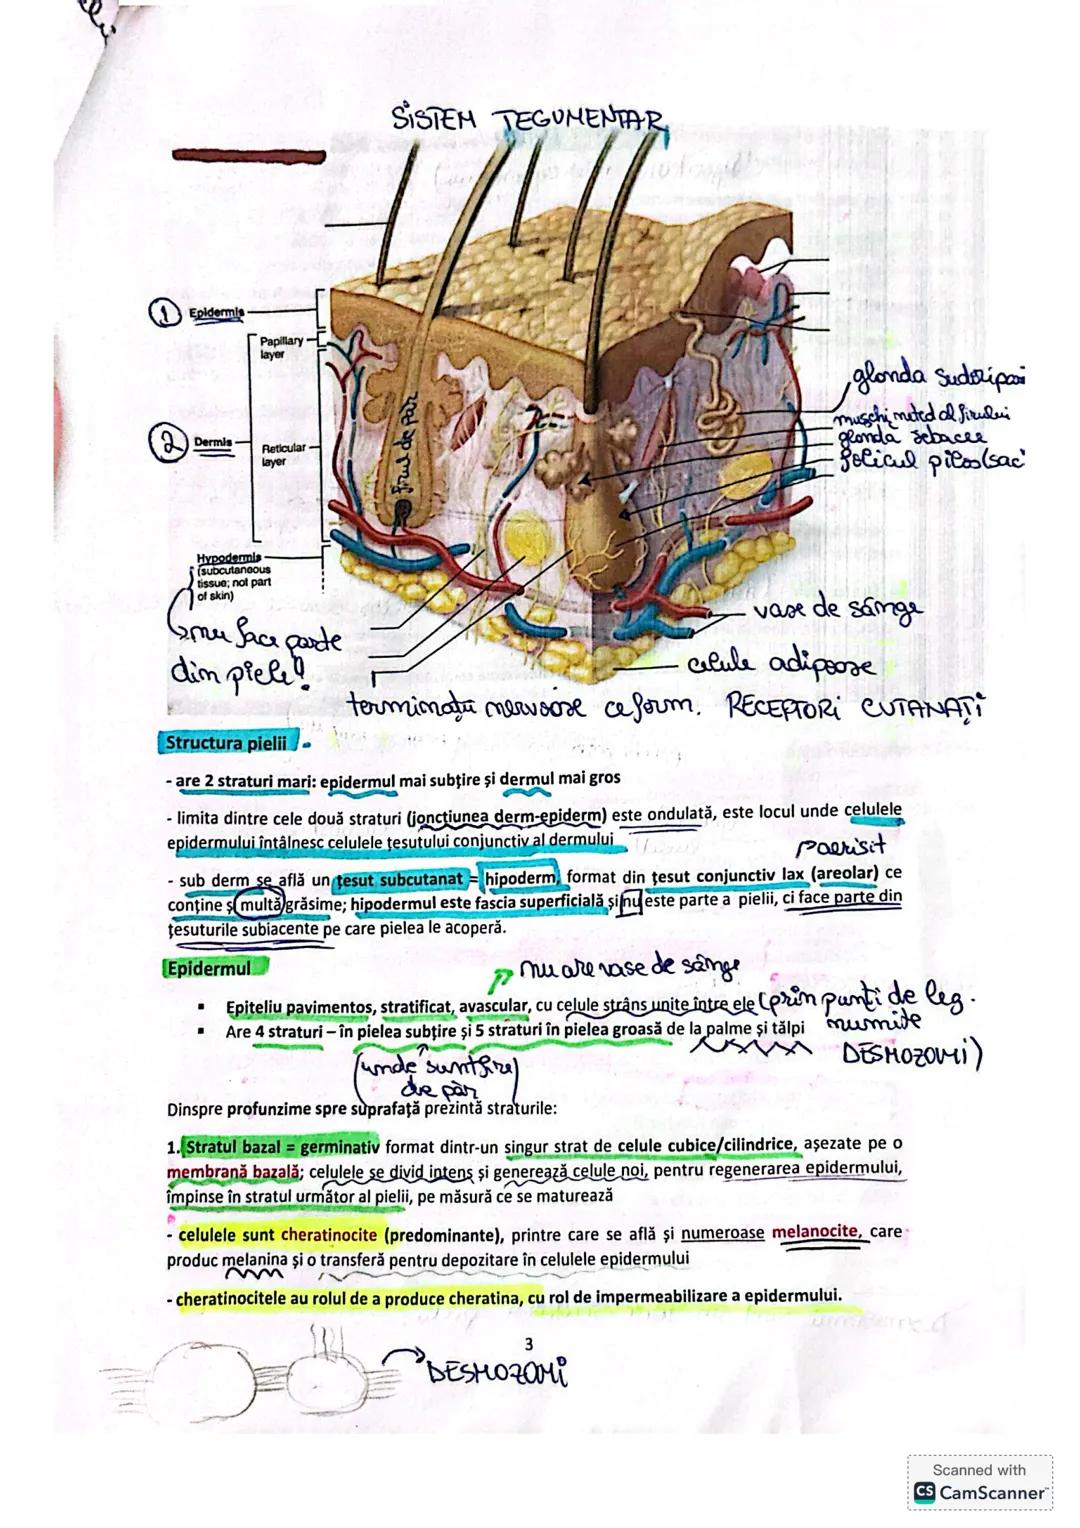 SISTEM TEGUMENTAR
1 Epidermis
Papillary layer
glanda sudoripară
mușchi neted al firului
2 Dermis
Reticular layer
glanda sebacee
folicul pilos (sac
firul de păr
Hypodermis
(subcutaneous
tissue; not part
of skin)
nu face parte
din piele!
vase de sânge
celule adipoase
terminații nervoase ce form. RECEPTORI CUTANAȚI
Structura pielii
- are 2 straturi mari: epidermul mai subțire și dermul mai gros
- limita dintre cele două straturi (joncțiunea derm-epiderm) este ondulată, este locul unde celulele
epidermului întâlnesc celulele țesutului conjunctiv al dermului
- sub derm se află un țesut subcutanat = hipoderm, format din țesut conjunctiv lax (areolar) ce
conține și multă grăsime; hipodermul este fascia superficială și nu este parte a pielii, ci face parte din
țesuturile subiacente pe care pielea le acoperă.
Epidermul
nu are vase de sânge
▪ Epiteliu pavimentos, stratificat, avascular, cu celule strâns unite între ele (prin punți de leg.
numite
DESMOZOMI)
▪ Are 4 straturi – în pielea subțire și 5 straturi în pielea groasă de la palme și tălpi
(unde sunt fire
de păr)
Dinspre profunzime spre suprafață prezintă straturile:
1. Stratul bazal = germinativ format dintr-un singur strat de celule cubice/cilindrice, așezate pe o
membrană bazală; celulele se divid intens și generează celule noi, pentru regenerarea epidermului,
împinse în stratul următor al pielii, pe măsură ce se maturează
- celulele sunt cheratinocite (predominante), printre care se află și numeroase melanocite, care
produc melanina și o transferă pentru depozitare în celulele epidermului
- cheratinocitele au rolul de a produce cheratina, cu rol de impermeabilizare a epidermului.
3
DESMOZOMI
Scanned with
CS CamScanner